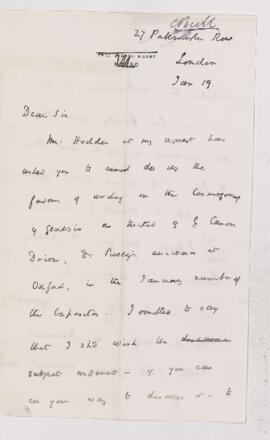 27 Paternoster Row
London
Jan 19.
Dear Sir
Mr. Hodder at my request has
asked you to send do us the
favour of writing on the Cosmogony
of Genesis as treated of by Canon
Driver, Dr Pusey's successor at
Oxford, in the January number of
the Expositor. I omitted to say
that I shd wish the
subject – if you can
see your way to discuss it – to